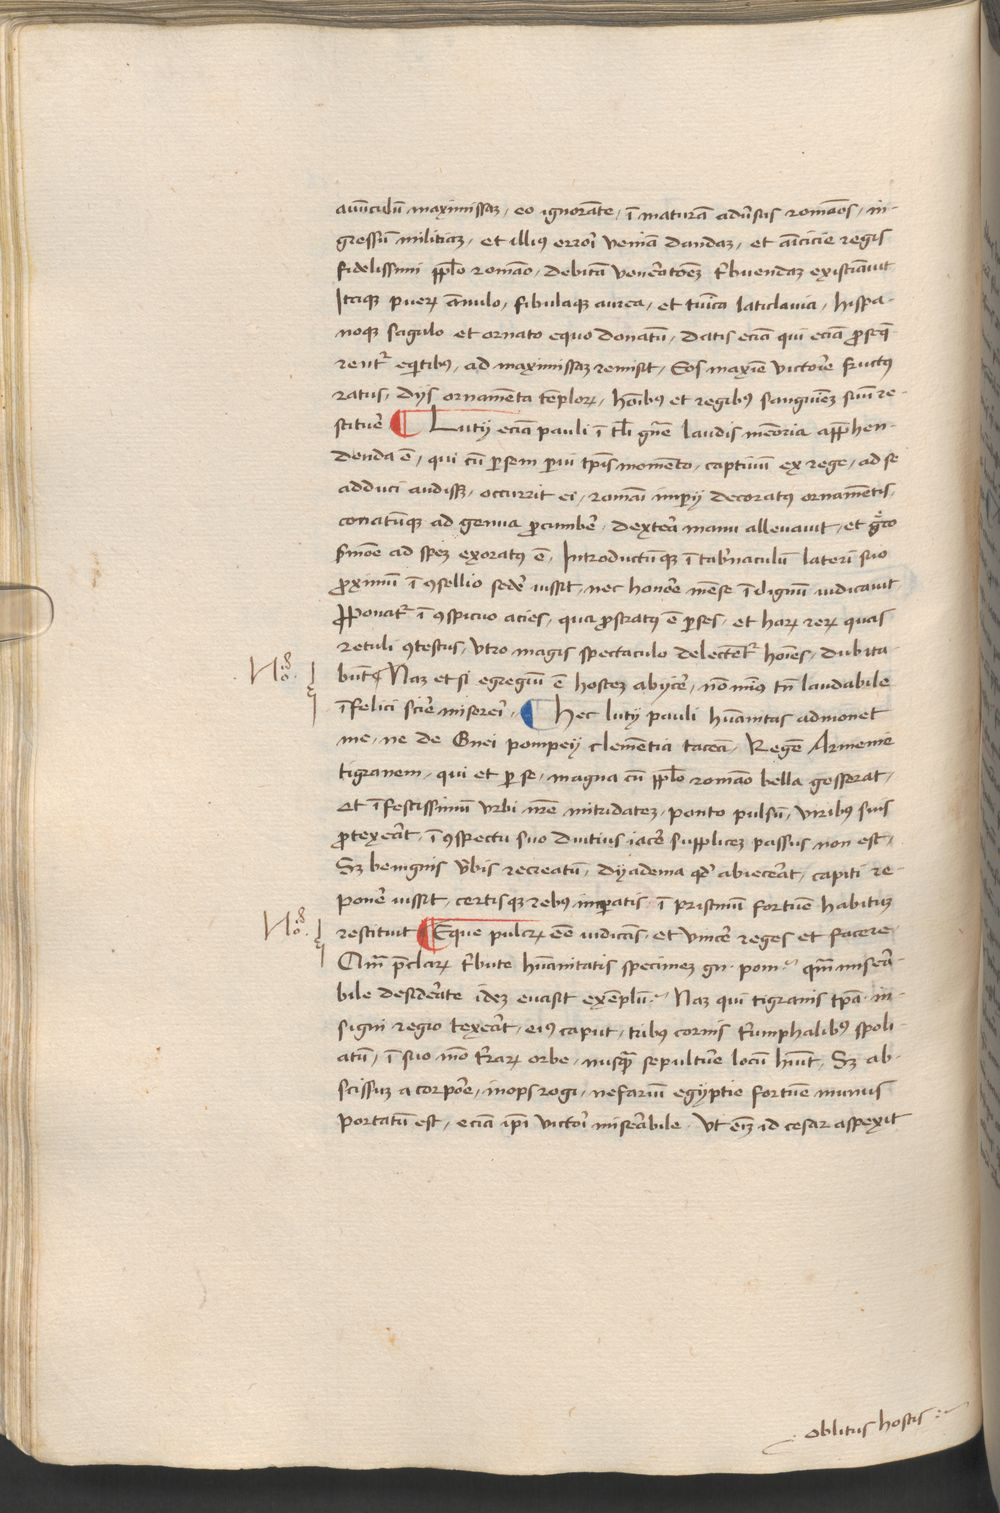 auūculū maximissaȝ, eo ignorāte, ī maturā adūsus romāos, in-
gressū militiaȝ, et illiꝰ errorī veniā dandaȝ, et amicicie regis
fidelissimi ppl̄o romāo, debitā venerātōeȝ tͥbuendaȝ existīauit
Itaqꝫ pueꝝ ānulo, fibulaqꝫ aurea, et tunica laticlauia, hispa-
noqꝫ sagulo et ornato equo donatū, datis eciā qui eciā ꝓseq̄-
rentᷣ eqͥtibꝰ, ad maximissaȝ remisit, Eos maxīe victorie fructꝰ
ratus, dijs ornamēta tēploꝝ, hōibꝰ et regibꝰ sanguinēȝ suū re-
stituē ¶ Lucij eciā pauli ī tl̄i gn̄e laudis memoria appͣhen-
denda ē, qui cū ꝑsem ꝑui tp̄is momēto, captiuū ex rege, ad se
adduci audissȝ, occurrit ei, romāi impij decoratꝰ ornamētis,
conatūqꝫ ad genua ꝓcumbē, dexterā manu alleuauit, et grͤco
ẜmōe ad speȝ exoratꝰ ē, Introductūqꝫ ī tabnaculū laterī suo
ꝓximū ī ꝯsellio sedē iussit, nec honōe mēse ī dignū iudicauit,
ꝓponatᷣ ī ꝯspicuo acies, qua ꝓstratꝰ ē ꝑses, et haꝝ reꝝ quas
retuli ꝯtextus, vtro magis spectaculo delectētᷣ hoīes, dubita-
būt ¶ Naȝ et si egregiū ē hosteȝ abijcē, nō minꝰ tn̄ laudabile
īfelici scire misererī, ¶ Hec lucij pauli hūanitas admonet
me, ne de Gnei pompeij clemētia taceā, Regē Armenie
tigranem, qui et ꝑ se, magna cū ppl̄o romāo bella gesserat,
et īfestissimū vrbi nr̄e mitridateȝ, ponto pulsū, viribꝰ suis
ꝓtexeāt, ī ꝯspectu suo diutius iacē suppliceȝ passus non est,
Sȝ benignis v̄bis recreatū, dyadema qd̓ abieceāt, capiti re-
ponē iussit, certisqꝫ rebꝰ impatis, ī pristinū fortūe habituȝ
restituit ¶ Eque pulcꝝ eē iudicās, et vincē reges et facere.
Qm̄ p̄claꝝ tͥbute hūanitatis specimeȝ gn. pom. qm̄ miserā-
bile desiderāte ideȝ euasit exēplū. Naȝ qui tigranis tp̄a in-
signi regio texeāt, eiꝰ caput, tribꝰ coronis tͥumphalibꝰ spoli-
atū, ī suo mō tͤraꝝ orbe, nusqͣ sepultūe locū hūit, Sȝ ab-
scissuȝ a corpōe, inops rogi, nefariū egyptie fortūe munus
portatū est, eciā ip̄i victorī miserābile. Vt eīȝ id cesar aspexit
oblitus hostis